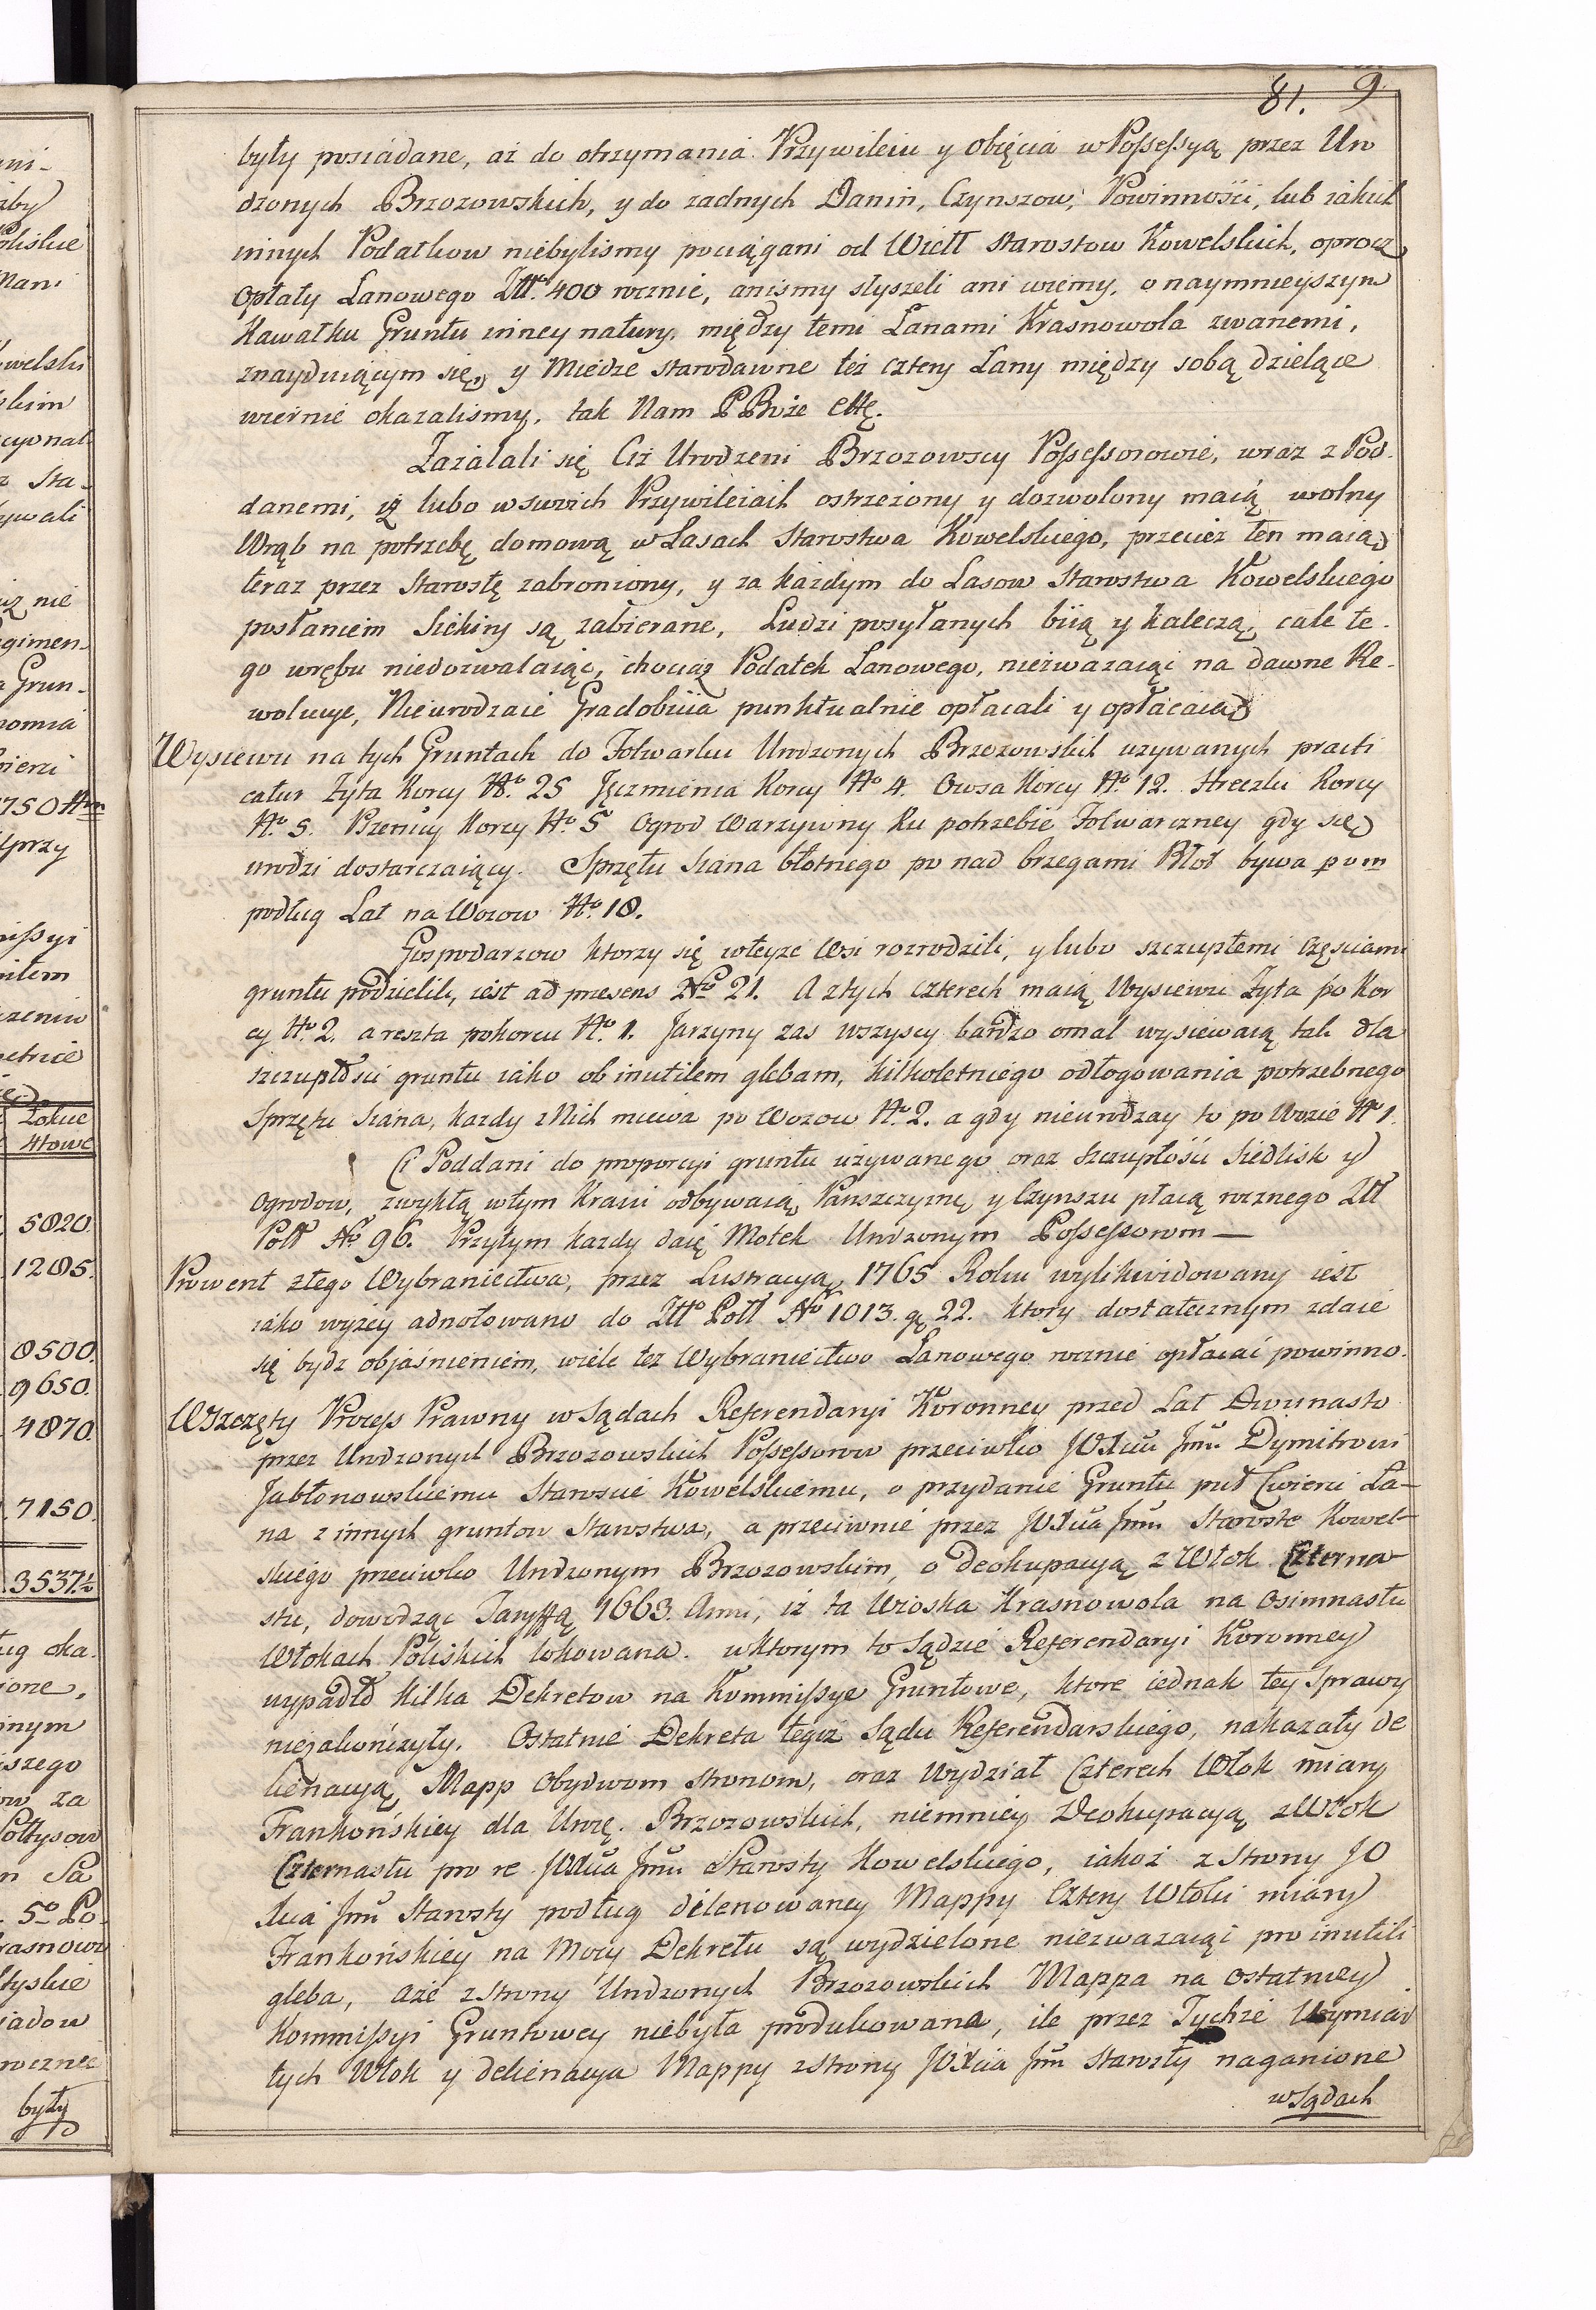 81. 9
były posiadane, aż do otrzymania Przywileiu y obięcia w Possessyą przez Uro
dzonych Brzozowskich, y do żadnych Danin, Czynszow, Powinnośći, lub iakich
innych Podatkow niebylismy pociągani od Wiell Starostow Kowelskich, oprocz
Opłaty Łanowego Złł. 400 rocznie, anismy słyszeli ani wiemy, o naymnieyszym
Kawałku Gruntu inney natury, między temi Łanami Krasnowola zwanemi,
znayduiącym się, y Miedze starodawne też cztery Łany między sobą dzielące
wiernie okazalismy, tak Nam P Boże ettę.
Zażalali się Ciż Urodzeni Brzozowscy Possessorowie, wraz z Pod-
danemi, iż lubo w swoich Przywileiach ostrzeżony y dozwolony maią wolny
Wrąb na potrzebę domową w Lasach Starostwa Kowelskiego, przecież ten maią
teraz przez Starostę zabroniony, y za każdym do Lasow Starostwa Kowelskiego
posłaniem Siekiry są zabierane, Ludzi posyłanych biią y kaleczą, cale te-
go wrębu niedozwalaiąc, chociaż Podatek Łanowego, nieżwazaiąc na dawne Re-
wolucye, Nieurodzaie Gradobiiia punktualnie opłacali y opłacaią
Wysiewu na tych Gruntach do Folwarku Urodzonych Brzozowskich uzywanych practi
catur Żyta Korcy No. 25 Jęczmienia Korcy No 4. Owsa Korcy No. 12. Hreczki Korcy
No. 5. Pszenicy Korcy No. 5 Ogrod Warzywny Ku potrzebie Folwarczney gdy się
urodzi dostarczaiący. Sprzętu Siana błotnego po nad brzegami Błot bywa pom
podług Lat na Wozow No. 18.
Gospodarzow ktorzy się wteyze Wsi rozrodzili, y lubo szczupłemi częsciami
gruntu podzielili, iest ad præsens No 21. A z tych czterech maią Wysiewu Żyta po Kor
cy No. 2. a reszta po korcu No. 1. Jarzyny zas wszyscy bardzo omal wysiewaią tak dla
szczupłości gruntu iako ob inutilem glebam, kilkoletniego odłogowania potrzebnego
Sprzętu Siana, każdy z Nich miewa po Wozow No. 2. a gdy nieurodzay to po Wozie No 1.
Ci Poddani do proporcyi gruntu używanego oraz Szczupłości Siedlisk y
Ogrodow, zwykłą w tym Kraiu odbywaią Panszczyznę y Czynszu płacą rocznego Złł
Poll No 96. Przytym każdy daię Motek Urodzonym Possessorom —
Prowent z tego Wybraniectwa, przez Lustracyą 1765 Roku wylikwidowany iest
iako wyżey adnotowano do Złło Poll No 1013. gę 22. ktory dostatecznym zdaie
się bydz objaśnieniem, wiele też Wybraniectwo Łanowego rocznie opłacać powinno.
Wszczęty Process Prawny w Sądach Referendaryi Koronney przed Lat Dwunasto
przez Urodzonych Brzozowskich Possessorow przeciwko JOXciu Jmu. Dymitrowi
Jabłonowskiemu Staroscie Kowelskiemu, o przydanie Gruntu puł Cwierci Ła-
na z innych gruntow Starostwa, a przeciwnie przez JOXcia Jmu Staroste Kowel-
skiego przeciwko Urodzonym Brzozowskim, o Deokupacyą z Włok Czterna-
stu, dowodząc Taryffą 1663. Anni, iż ta Wioska Krasnowola na Osimnastu
Włokach Poliskich lokowana. w ktorym to Sądzie Referendaryi Koronney
wypadło kilka Dekretow na Kommissye Gruntowe, ktore iednak tey Sprawy
niezakończyły. Ostatnie Dekreta tegoż Sądu Referendarskiego, nakazały de
lienacyą Mapp Obydwom stronom, oraz Wydział Czterech Włok miary
Frankońskiey dla Urzę. Brzozowskich, niemniey Deokupacyą z Włok
Czternastu pro re JOXcia Jmu. Starosty Kowelskiego, iakoż z Strony JO
Xcia Jmu Starosty podług delenowaney Mappy Cztery Włoki miary
Frankońskiey na Mocy Dekretu są wydzielone niezwazaiąc pro inutili
gleba, aże z Strony Urodzonych Brzozowskich Mappa na Ostatniey
Kommissyi Gruntowey niebyła produkowana, ile przez Tychże Wymiar
tych Włok y delienacya Mappy z Strony JOXcia Jmu Starosty naganione
w Sądach